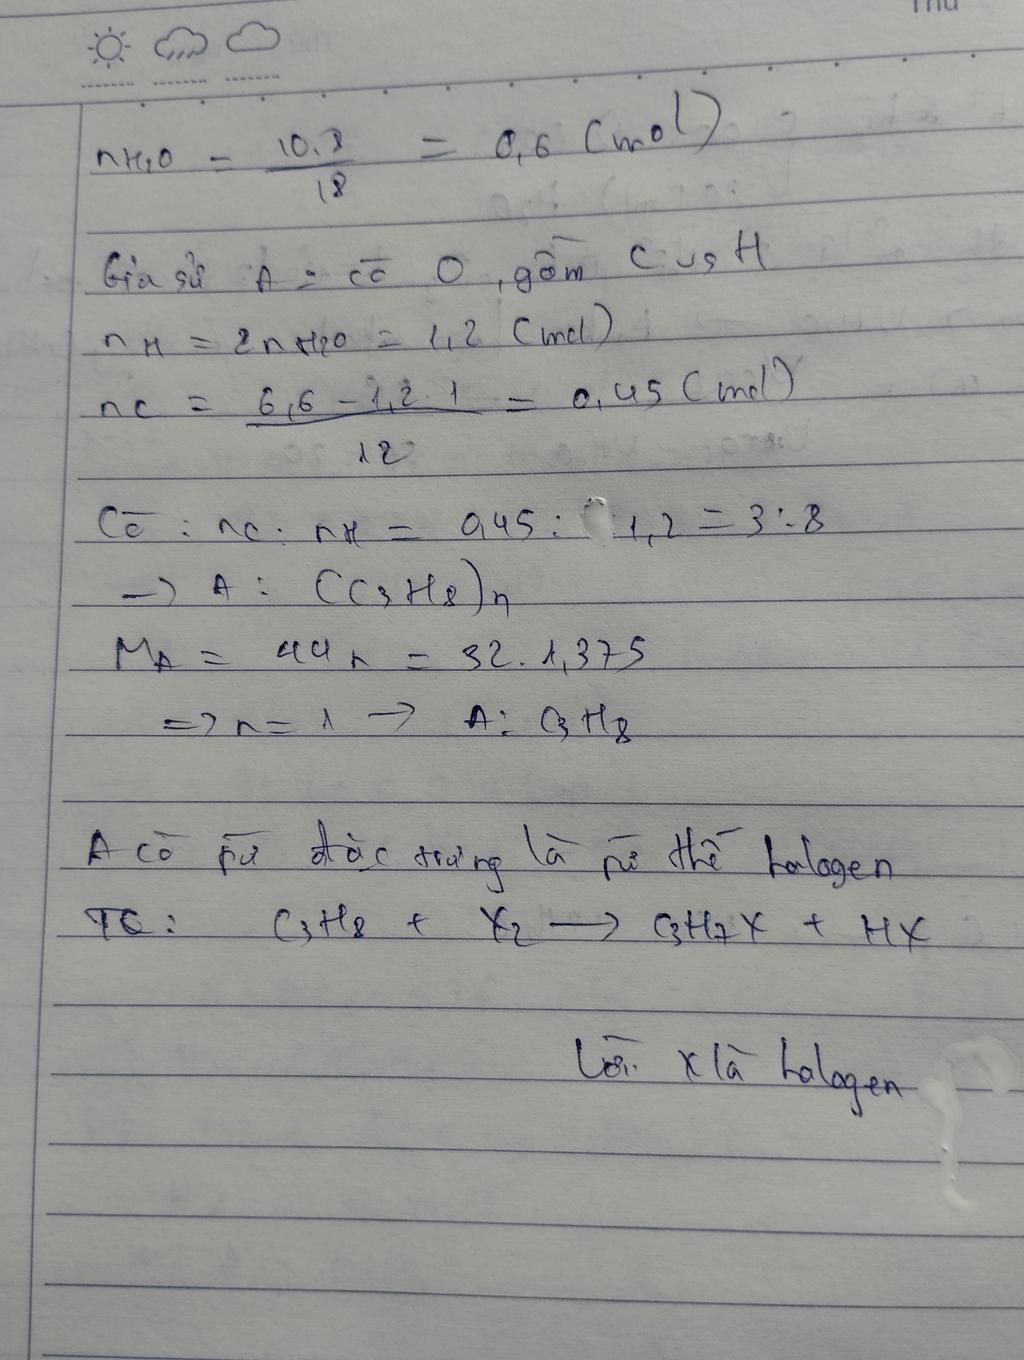 Thứ
nH₂O = 10,8/18 = 0,6 (mol)
Giả sử A = có O, gồm C và H
nH = 2nH₂O = 1,2 (mol)
nC = (6,6 - 1,2.1)/12 = 0,45 (mol)
Có : nC : nH = 0,45 : 1,2 = 3:8
→ A : (C₃H₈)n
MA = 44n = 32.1,375
=> n = 1 → A : C₃H₈
A có pứ đặc trưng là pứ thế halogen
TQ : C₃H₈ + X₂ → C₃H₇X + HX
Với X là halogen